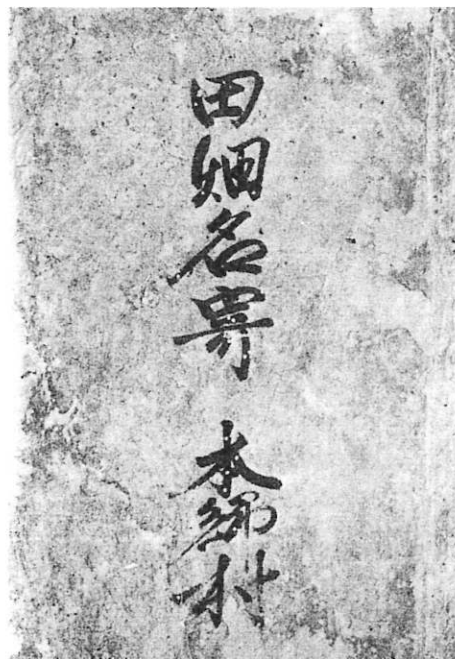 田畑名寄　本郷村